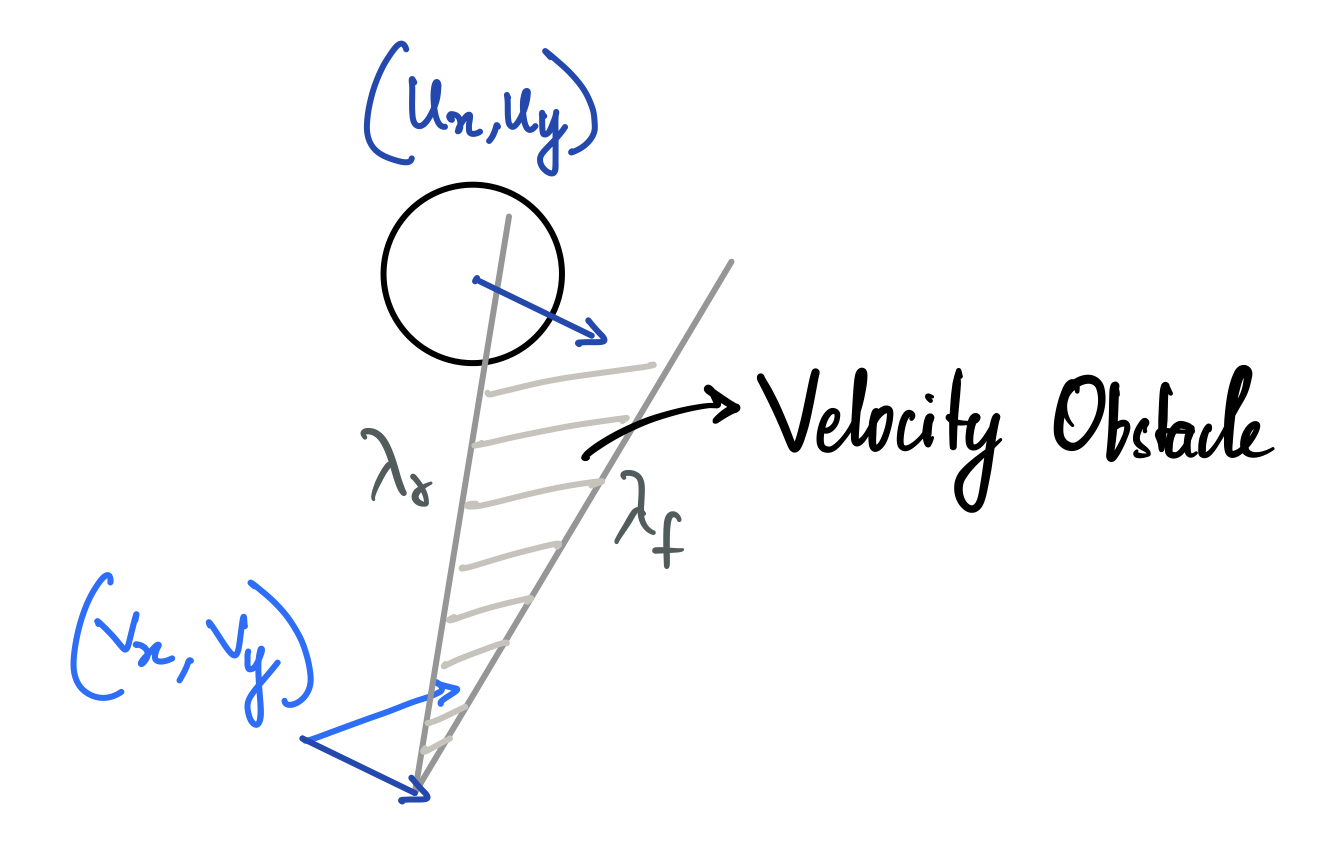 (Ux, Uy)
Velocity Obstacle
λr
λf
(Vx, Vy)